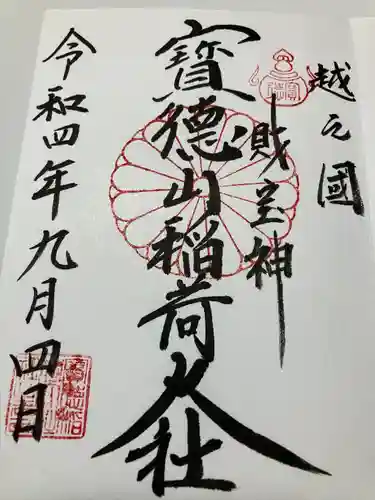 越之國
財宝神
寶德山稲荷大社
令和四年九月四日